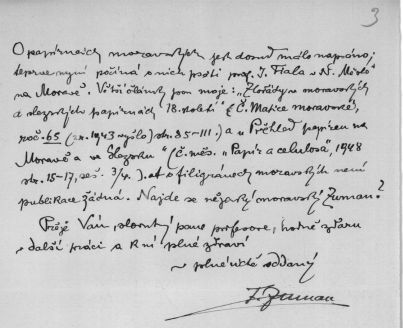 3
O papírnách moravských jest dosud málo napsáno;
teprve nyní počíná o nich psáti prof. J. Fiala v N. Městě
na Moravě. Větší články jsou moje: „Zlořády v moravských
a slezských papírnách 18. století" (Č. Matice moravské,
roč. 65 (z r. 1943 vyšlo) str. 85–111.) a „Přehled papíren na
Moravě a ve Slezsku" (Č. měs. „Papír a celulosa", 1948
str. 15–17, seš. 3/4.). O filigránech moravských není
publikace žádná. Najde se nějaký moravský Zuman?
Přeji Vám, slovutný pane profesore, hodně zdaru
v další práci a k ní plné zdraví
v plné úctě oddaný
F. Zuman